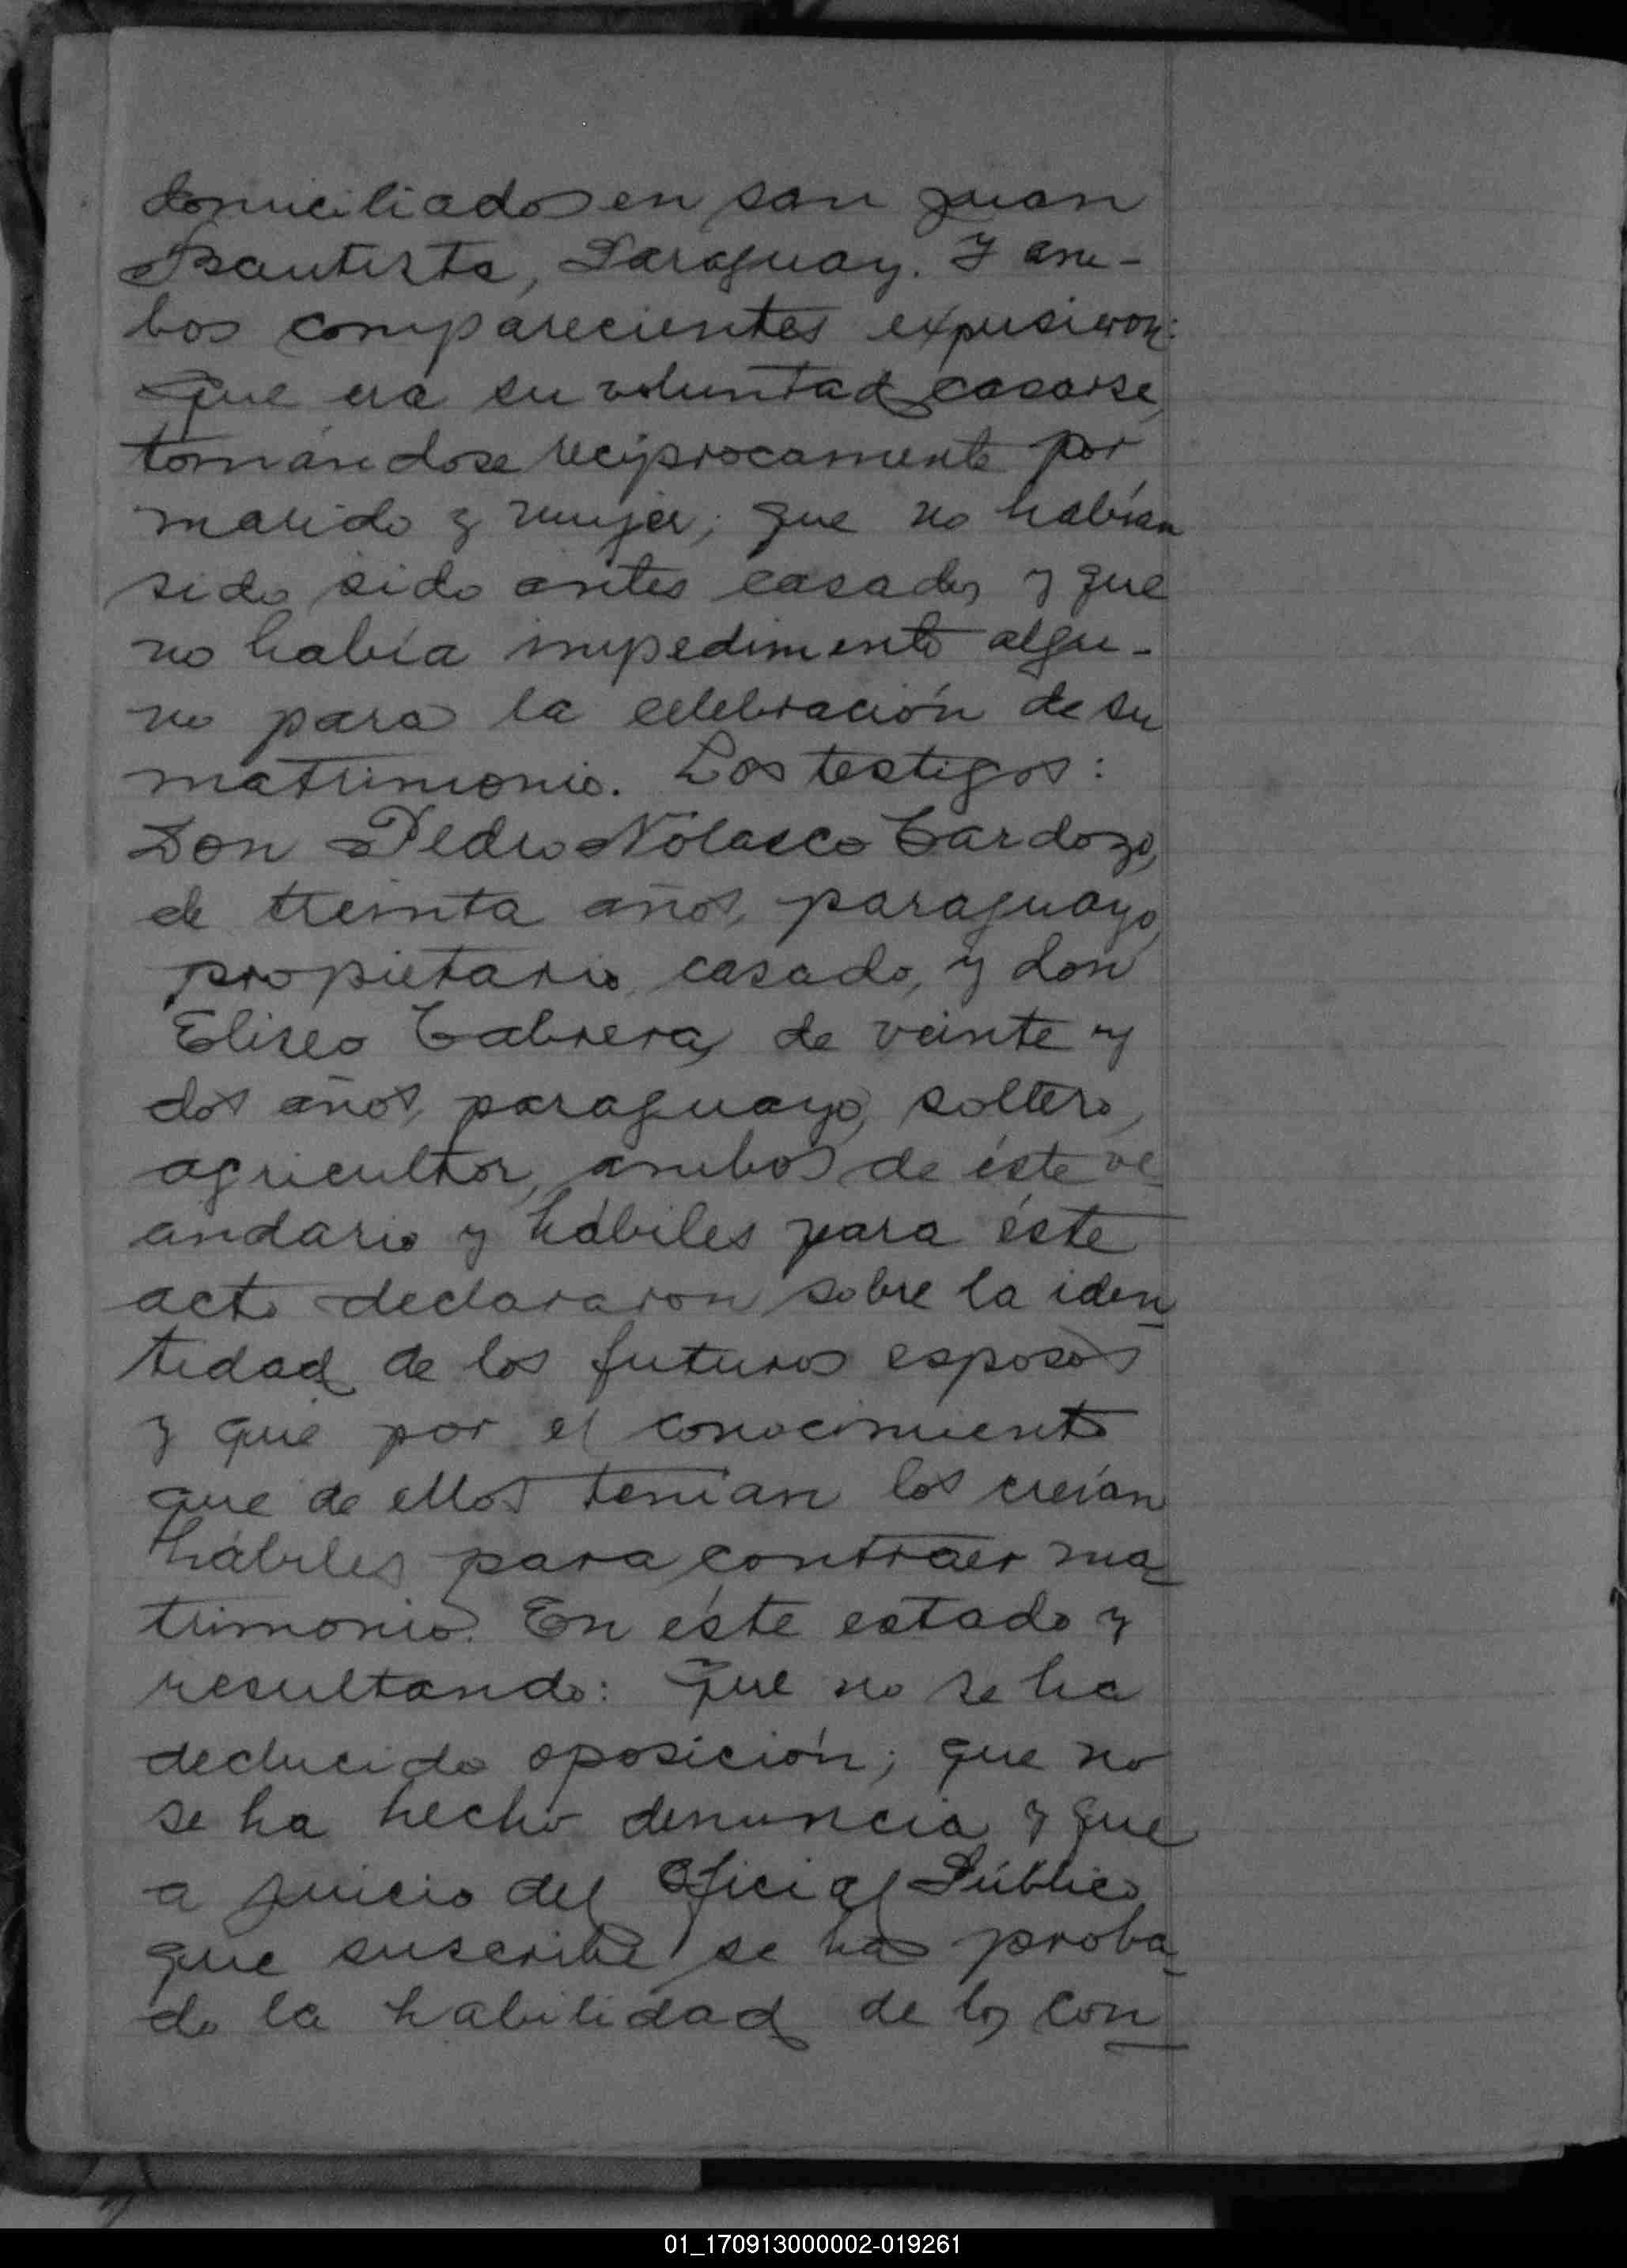 domiciliados en san Juan
Bautista, Paraguay. Y am-
bos comparecientes expusieron:
Que era su voluntad casarse,
tomándose reciprocamente por
marido y mujer; que no habían
sido sido antes casados y que
no había impedimento algu-
no para la celebración de su
matrimonio. Los testigos:
Don Pedro Nolasco Cardozo,
de treinta años, paraguayo,
propietario, casado, y don
Eliseo Cabrera, de veinte y
dos años, paraguayo, soltero,
agricultor, ambos de éste ve
andario y hábiles para éste
acto declararon sobre la iden
tidad de los futuros esposos
y que por el conocimiento
que de ellos tenían los creían
hábiles para contraer ma
trimonio. En éste estado y
resultando: Que no se ha
deducido oposición; que no
se ha hecho denuncia y que
a juicio del Oficial Público
que suscribe se ha proba
do la habilidad de los con
01_170913000002-019261